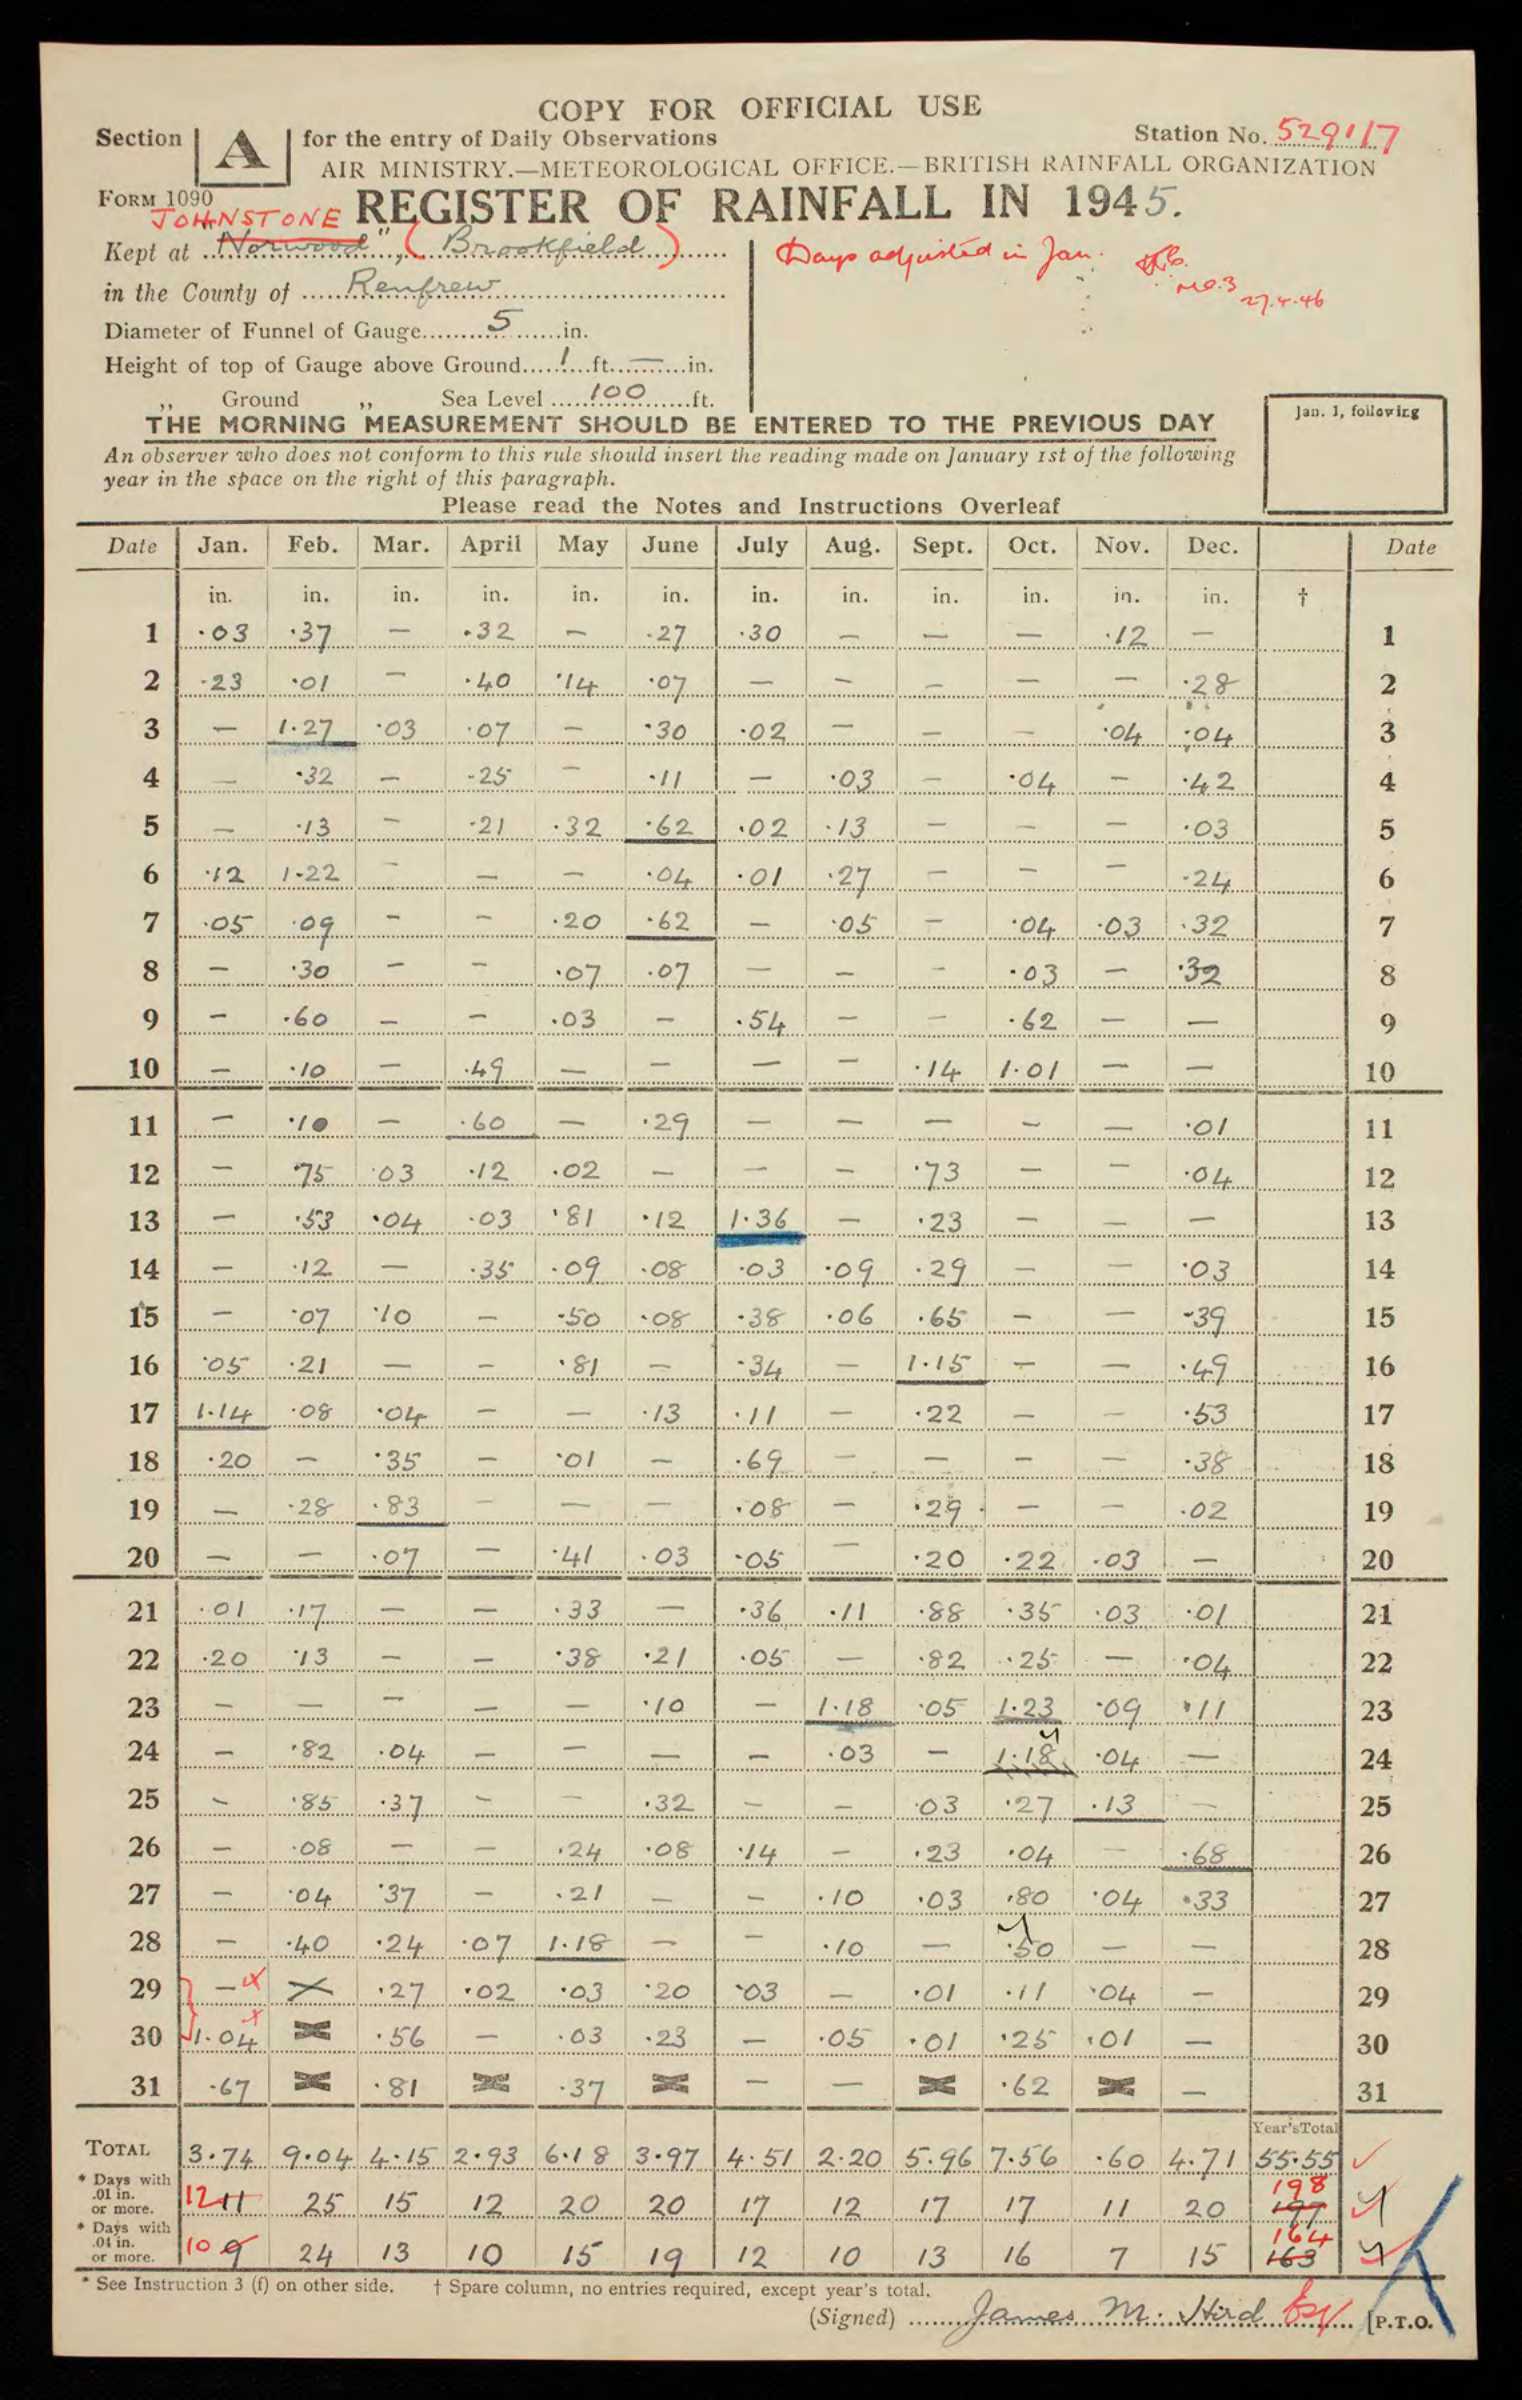 COPY FOR OFFICIAL USE
Section A for the entry of Daily Observations
Station No. 529117
AIR MINISTRY.—METEOROLOGICAL OFFICE.—BRITISH RAINFALL ORGANIZATION
FORM 1090
JOHNSTONE
REGISTER OF RAINFALL IN 1945.
Kept at "Norwood", (Brookfield)
Days adjusted in Jan.
M.O.3
27.4.46
in the County of Renfrew
Diameter of Funnel of Gauge 5 in.
Height of top of Gauge above Ground 1 ft. — in.
,, Ground ,, Sea Level 100 ft.
THE MORNING MEASUREMENT SHOULD BE ENTERED TO THE PREVIOUS DAY
An observer who does not conform to this rule should insert the reading made on January 1st of the following
year in the space on the right of this paragraph.
Jan. 1, following
Please read the Notes and Instructions Overleaf
Date Jan. Feb. Mar. April May June July Aug. Sept. Oct. Nov. Dec. Date
in. in. in. in. in. in. in. in. in. in. in. in. †
1 .03 .37 — .32 — .27 .30 — — — .12 — 1
2 .23 .01 — .40 .14 .07 — — — — — .28 2
3 — 1.27 .03 .07 — .30 .02 — — — .04 .04 3
4 — .32 — .25 — .11 — .03 — .04 — .42 4
5 — .13 — .21 .32 .62 .02 .13 — — — .03 5
6 .12 1.22 — — — .04 .01 .27 — — — .24 6
7 .05 .09 — — .20 .62 — .05 — .04 .03 .32 7
8 — .30 — — .07 .07 — — — .03 — .32 8
9 — .60 — — .03 — .54 — — .62 — — 9
10 — .10 — .49 — — — — .14 1.01 — — 10
11 — .10 — .60 — .29 — — — — — .01 11
12 — .75 .03 .12 .02 — — — .73 — — .04 12
13 — .53 .04 .03 .81 .12 1.36 — .23 — — — 13
14 — .12 — .35 .09 .08 .03 .09 .29 — — .03 14
15 — .07 .10 — .50 .08 .38 .06 .65 — — .39 15
16 .05 .21 — — .81 — .34 — 1.15 — — .49 16
17 1.14 .08 .04 — — .13 .11 — .22 — — .53 17
18 .20 — .35 — .01 — .69 — — — — .38 18
19 — .28 .83 — — — .08 — .29 — — .02 19
20 — — .07 — .41 .03 .05 — .20 .22 .03 — 20
21 .01 .17 — — .33 — .36 .11 .88 .35 .03 .01 21
22 .20 .13 — — .38 .21 .05 — .82 .25 — .04 22
23 — — — — — .10 — 1.18 .05 1.23 .09 .11 23
24 — .82 .04 — — — — .03 — 1.18 .04 — 24
25 — .85 .37 — — .32 — — .03 .27 .13 — 25
26 — .08 — — .24 .08 .14 — .23 .04 — .68 26
27 — .04 .37 — .21 — — .10 .03 .80 .04 .33 27
28 — .40 .24 .07 1.18 — — .10 — .50 — — 28
29 — x × .27 .02 .03 .20 .03 — .01 .11 .04 — 29
30 1.04 x × .56 — .03 .23 — .05 .01 .25 .01 — 30
31 .67 × .81 × .37 × — — × .62 × — 31
Year's Total
TOTAL 3.74 9.04 4.15 2.93 6.18 3.97 4.51 2.20 5.96 7.56 .60 4.71 55.55
* Days with .01 in. or more. 12 11 25 15 12 20 20 17 12 17 17 11 20 198 197
* Days with .04 in. or more. 10 9 24 13 10 15 19 12 10 13 16 7 15 164 163
* See Instruction 3 (f) on other side. † Spare column, no entries required, except year's total.
(Signed) James M. Hird Esq [P.T.O.